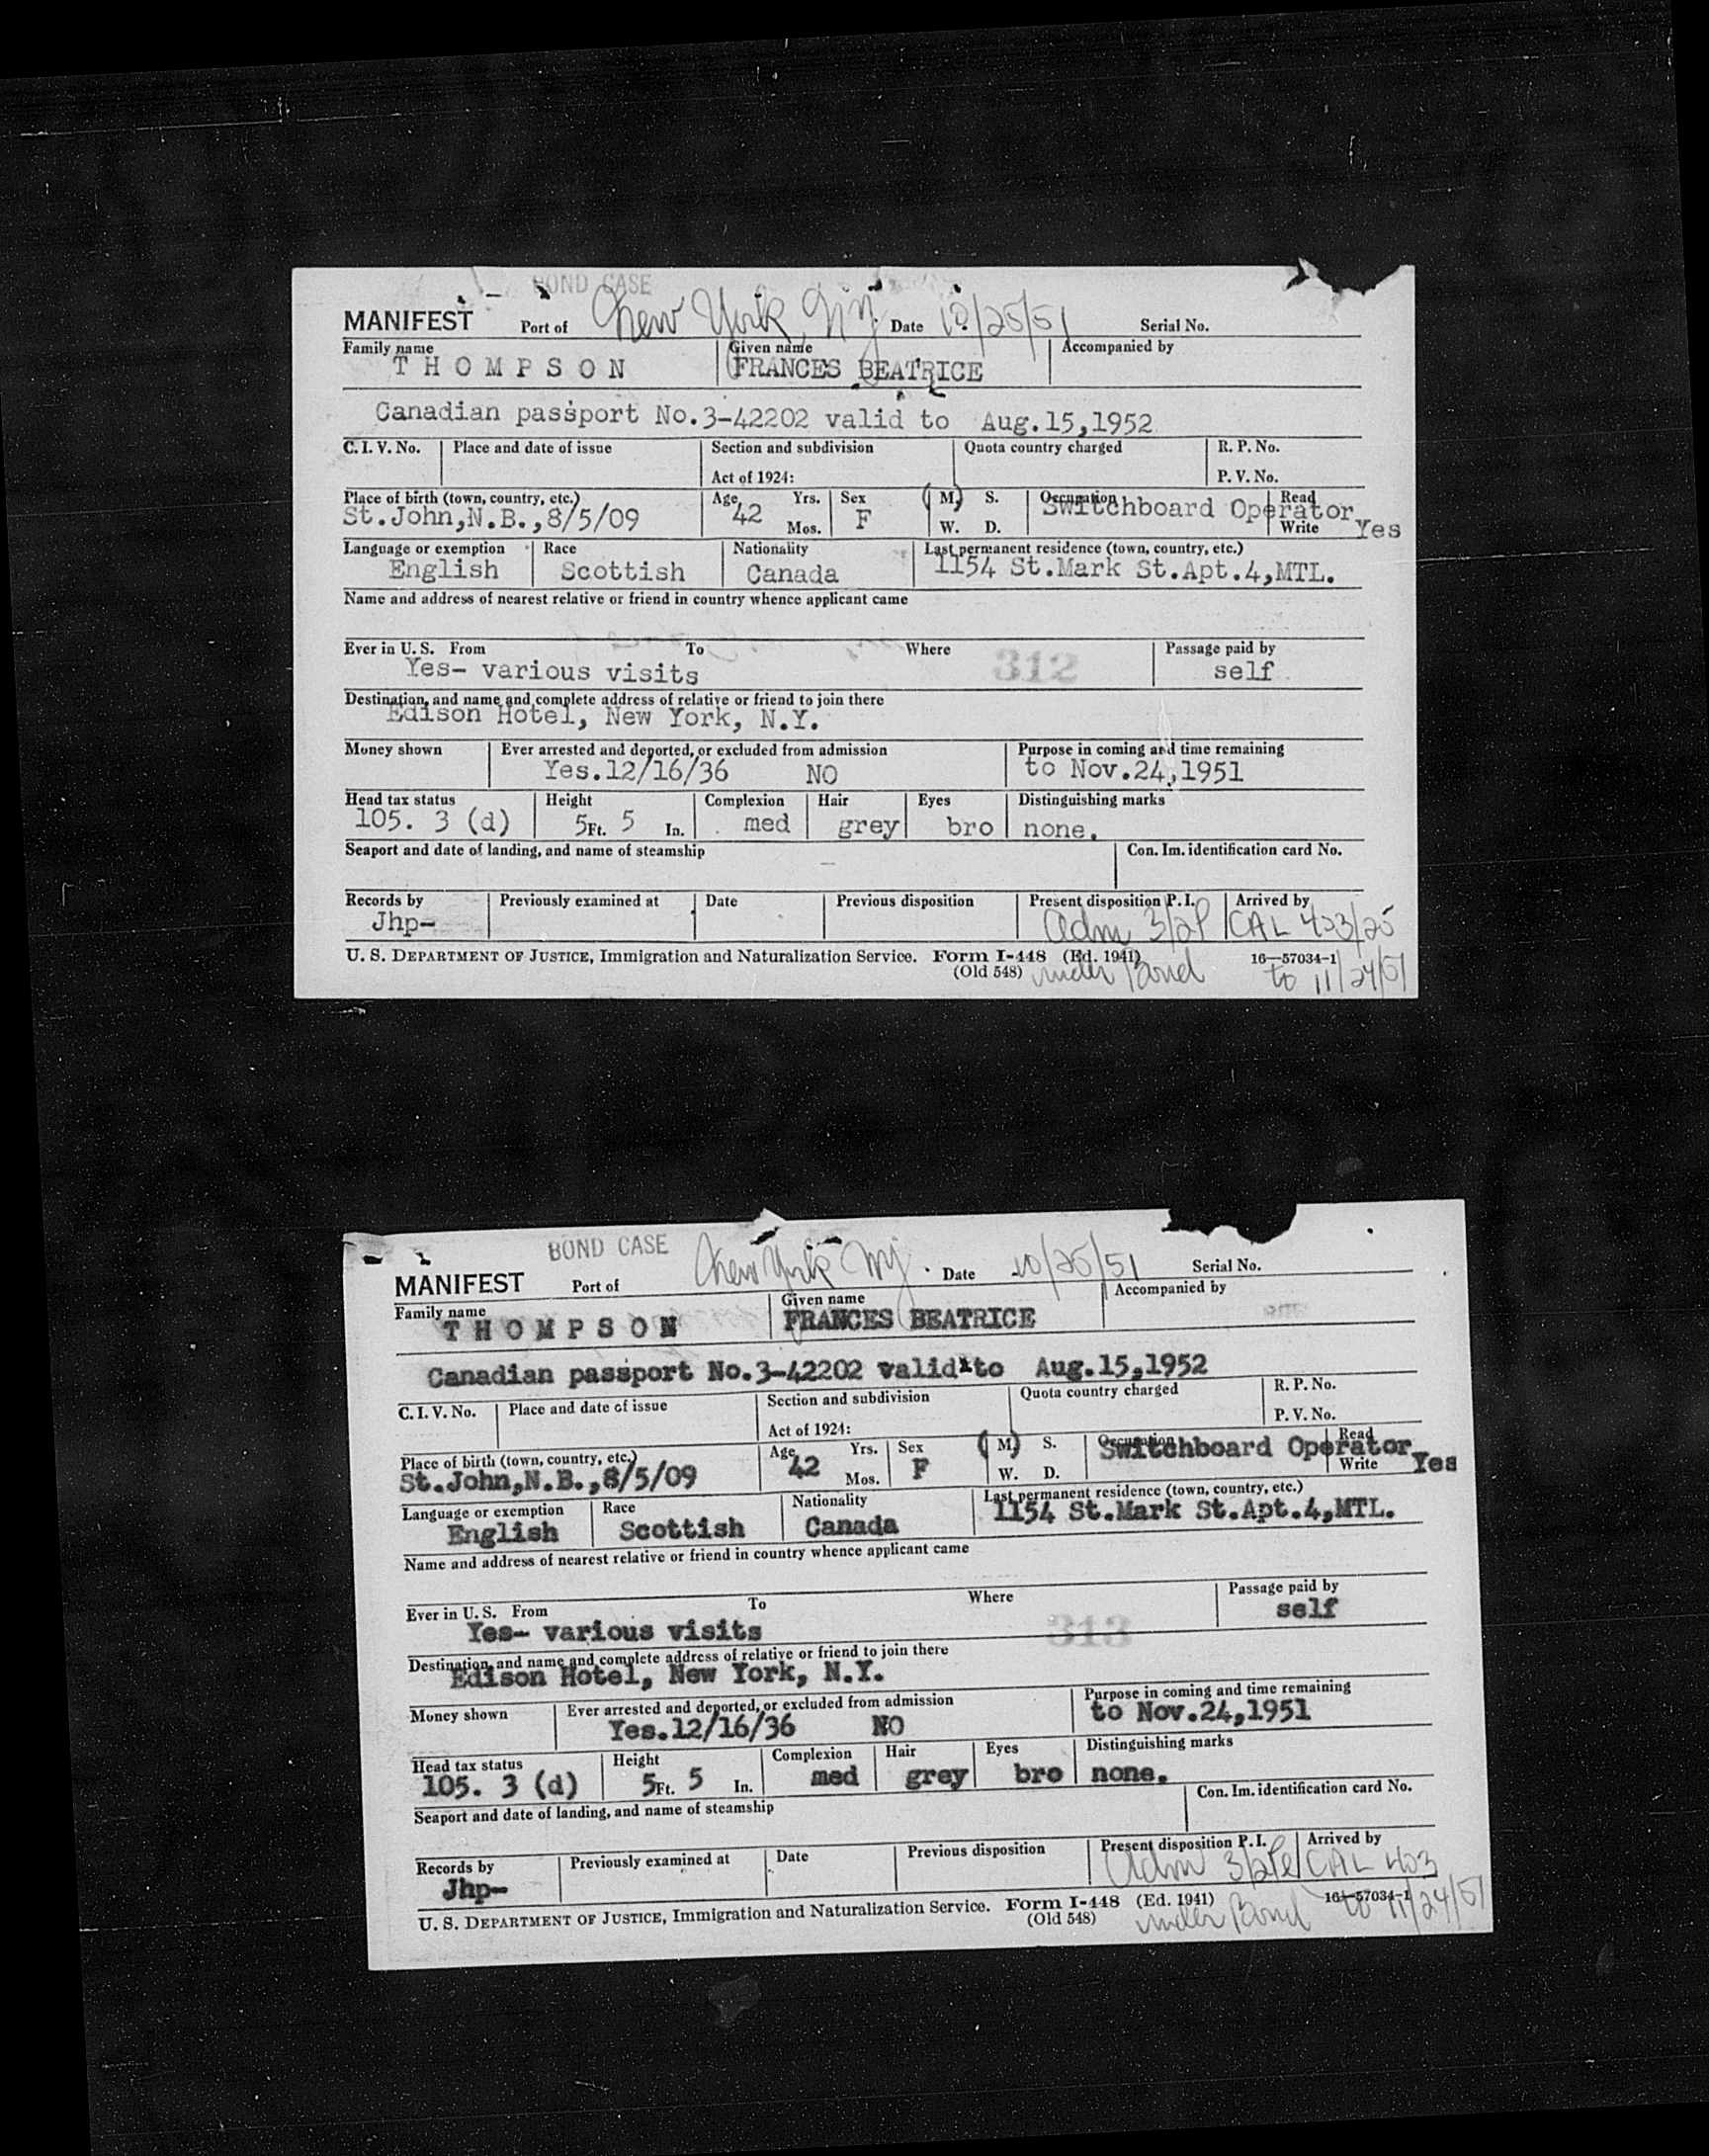 BOND CASE
MANIFEST Port of New York, NY Date 10/25/51 Serial No.
Family name Given name Accompanied by
THOMPSON FRANCES BEATRICE
Canadian passport No.3-42202 valid to Aug.15,1952
C. I. V. No. Place and date of issue Section and subdivision Quota country charged R. P. No.
Act of 1924: P. V. No.
Place of birth (town, country, etc.) Age Yrs. Sex M. S. Occupation Read
St.John,N.B.,8/5/09 42 Mos. F W. D. Switchboard Operator Write Yes
Language or exemption Race Nationality Last permanent residence (town, country, etc.)
English Scottish Canada 1154 St.Mark St.Apt.4,MTL.
Name and address of nearest relative or friend in country whence applicant came
Ever in U. S. From To Where Passage paid by
Yes- various visits 312 self
Destination, and name and complete address of relative or friend to join there
Edison Hotel, New York, N.Y.
Money shown Ever arrested and deported, or excluded from admission Purpose in coming and time remaining
Yes.12/16/36 NO to Nov.24,1951
Head tax status Height Complexion Hair Eyes Distinguishing marks
105. 3 (d) 5 Ft. 5 In. med grey bro none.
Seaport and date of landing, and name of steamship Con. Im. identification card No.
Records by Previously examined at Date Previous disposition Present disposition P. I. Arrived by
Jhp- adm 3/2 CAL 403/25
U. S. DEPARTMENT OF JUSTICE, Immigration and Naturalization Service. Form I-448 (Ed. 1941) 16—57034-1
(Old 548) under Bond to 11/24/51
BOND CASE
MANIFEST Port of New York NY. Date 10/25/51 Serial No.
Family name Given name Accompanied by
THOMPSON FRANCES BEATRICE
Canadian passport No.3-42202 valid to Aug.15,1952
C. I. V. No. Place and date of issue Section and subdivision Quota country charged R. P. No.
Act of 1924: P. V. No.
Place of birth (town, country, etc.) Age Yrs. Sex M. S. Occupation Read
St.John,N.B.,8/5/09 42 Mos. F W. D. Switchboard Operator Write Yes
Language or exemption Race Nationality Last permanent residence (town, country, etc.)
English Scottish Canada 1154 St.Mark St.Apt.4,MTL.
Name and address of nearest relative or friend in country whence applicant came
Ever in U. S. From To Where Passage paid by
Yes- various visits 313 self
Destination, and name and complete address of relative or friend to join there
Edison Hotel, New York, N.Y.
Money shown Ever arrested and deported, or excluded from admission Purpose in coming and time remaining
Yes.12/16/36 NO to Nov.24,1951
Head tax status Height Complexion Hair Eyes Distinguishing marks
105. 3 (d) 5 Ft. 5 In. med grey bro none.
Seaport and date of landing, and name of steamship Con. Im. identification card No.
Records by Previously examined at Date Previous disposition Present disposition P. I. Arrived by
Jhp- adm 3/2 CAL 403
U. S. DEPARTMENT OF JUSTICE, Immigration and Naturalization Service. Form I-448 (Ed. 1941) 16—57034-1
(Old 548) under Bond to 11/24/51